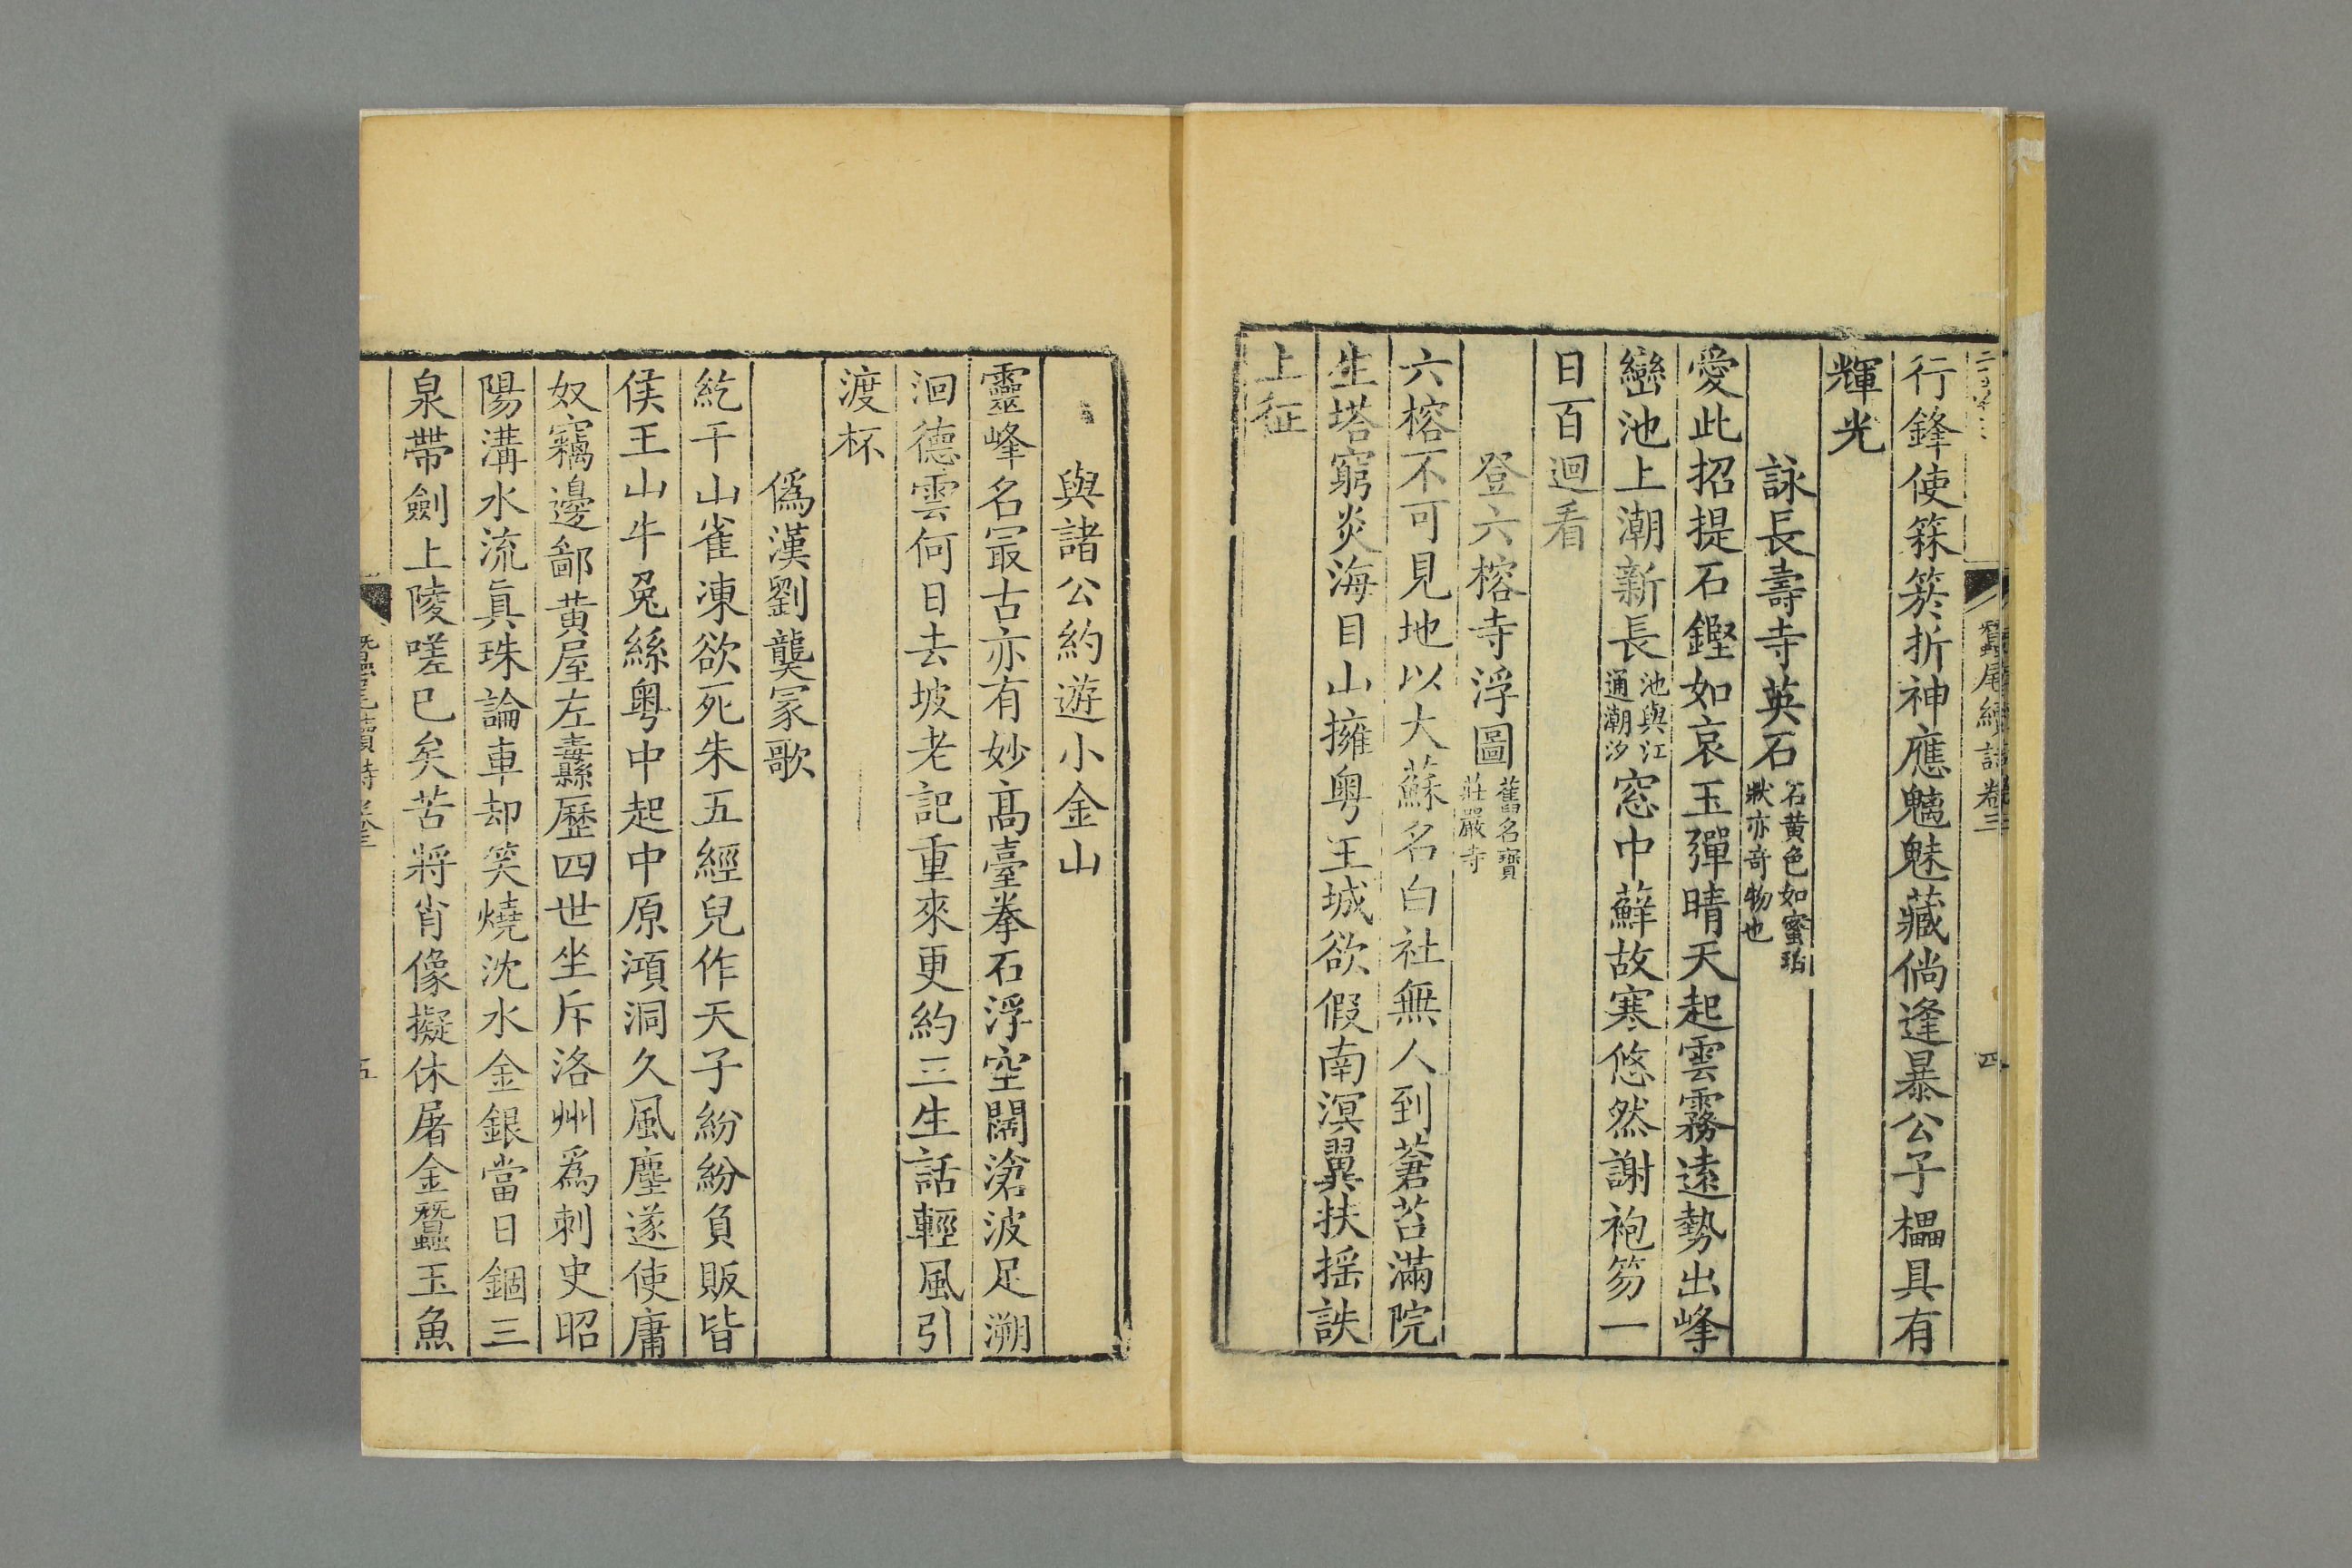 蠶尾續詩卷三 四
行鋒使箖箊折神應魑魅藏倘逢暴公子櫑具有
輝光
詠長壽寺英石石黄色如蜜珀狀亦奇物也
愛此招提石鏗如哀玉彈晴天起雲霧遠勢出峰
巒池上潮新長池與江通潮汐窓中蘚故寒悠然謝袍笏一
日百迴看
登六榕寺浮圖舊名寶莊嚴寺
六榕不可見地以大蘇名白社無人到蒼苔滿院
生塔窮炎海目山擁粤王城欲假南溟翼扶摇訣
上征
與諸公約遊小金山
靈峰名冣古亦有妙高臺拳石浮空闊滄波足溯
洄德雲何日去坡老記重來更約三生話輕風引
渡杯
僞漢劉龑冢歌
紇干山雀凍欲死朱五經兒作天子紛紛負販皆
侯王山牛兔絲粤中起中原澒洞久風塵遂使庸
奴竊邊鄙黄屋左纛歷四世坐斥洛州爲刺史昭
陽溝水流眞珠論車却笑燒沈水金銀當日錮三
泉帶劍上陵嗟已矣苦將肖像擬休屠金蠶玉魚
蠶尾續詩卷三 五